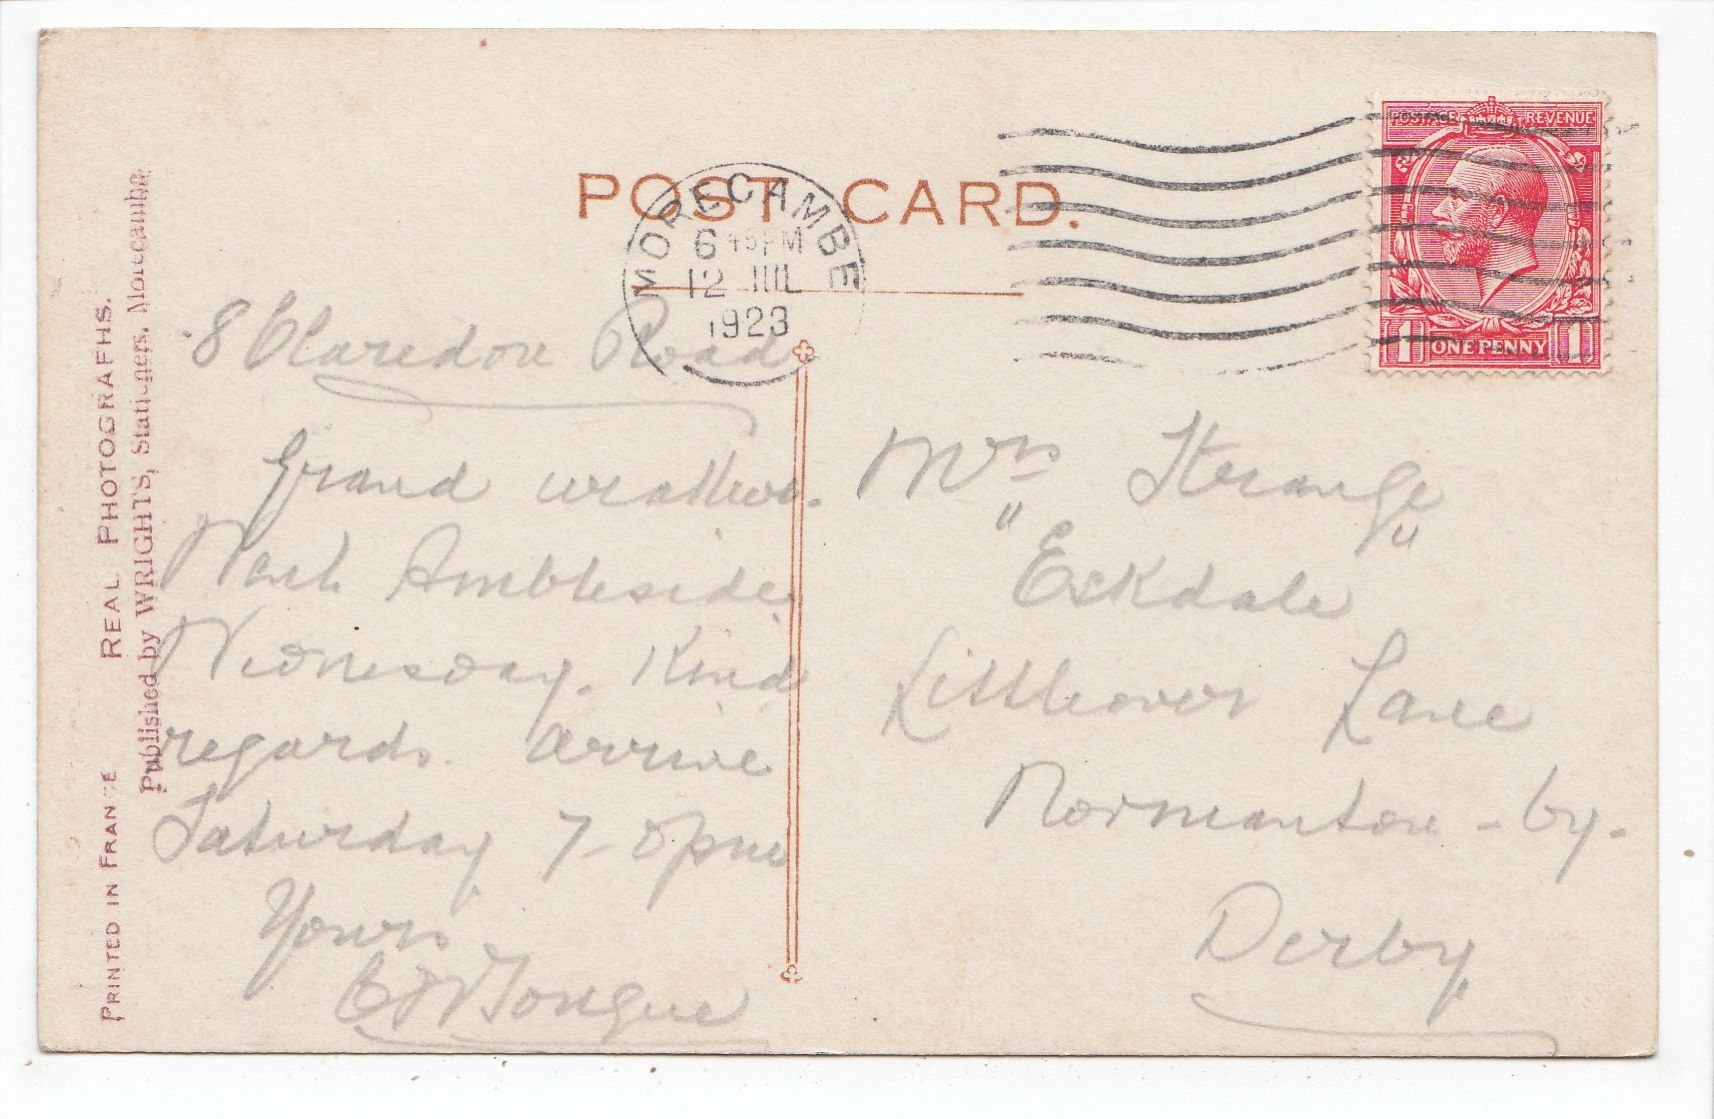 POST CARD.
MORECAMBE
6 45 PM
12 JUL
1923
POSTAGE REVENUE
1 ONE PENNY 1
PRINTED IN FRANCE REAL PHOTOGRAPHS.
Published by WRIGHTS, Stationers, Morecambe
8 Claredon Road
Grand weather.
Ambleside
Wednesday. Kind
regards. Arrive
Saturday 7-0pm
Yours
Tongue
Mrs Strange
"Eskdale"
Littleover Lane
Normanton-by-
Derby